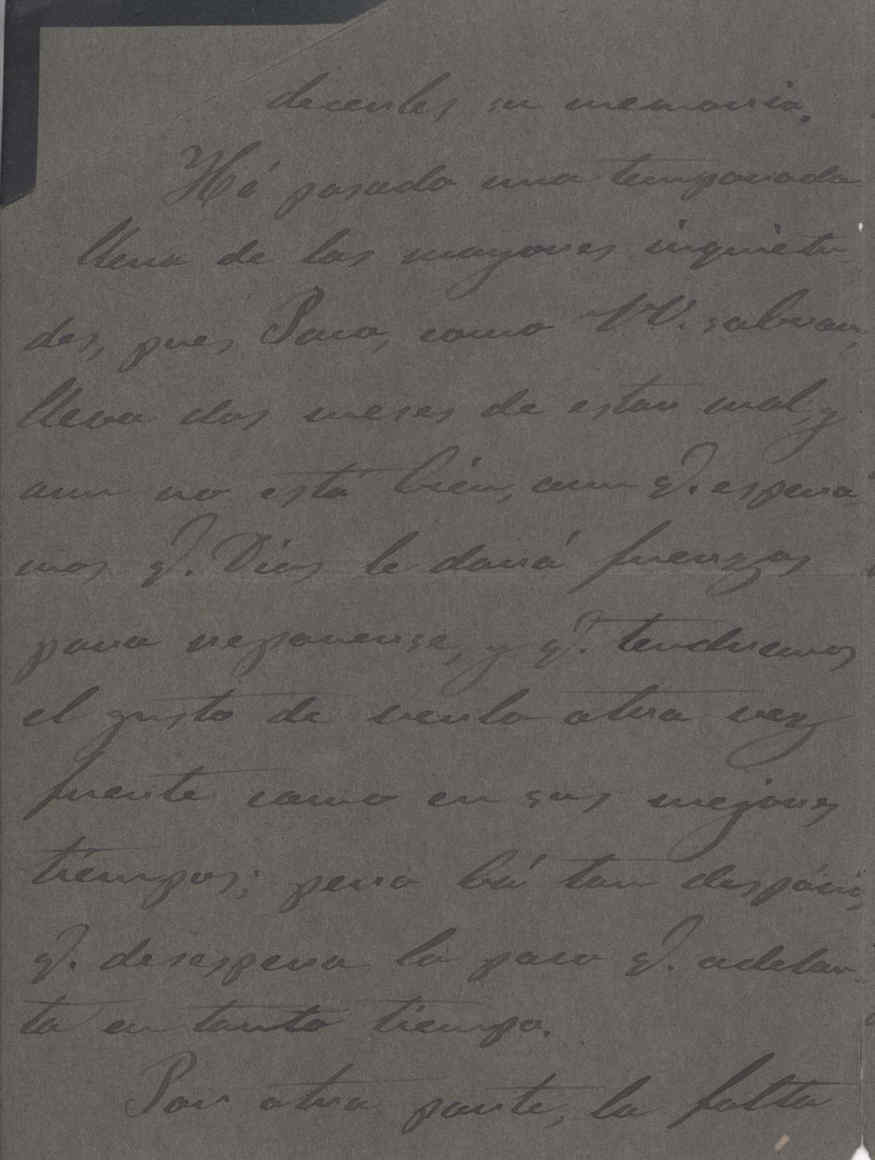 decerles su memoria.
Há pasado una temporada
llena de las mayores inquietu
des, pues Paco, como VV. sabran,
lleva dos meses de estar mal, y
aun no está bien, aun q.e espera-
mos q.e Dios le dará fuerzas
para reponerse, y q.e tendremos
el gusto de verlo otra vez
fuerte como en sus mejores
tiempos; pero bá tan despácio,
q.e desespera lo poco q.e adelan-
ta en tanto tiempo.
Por otra parte, la falta